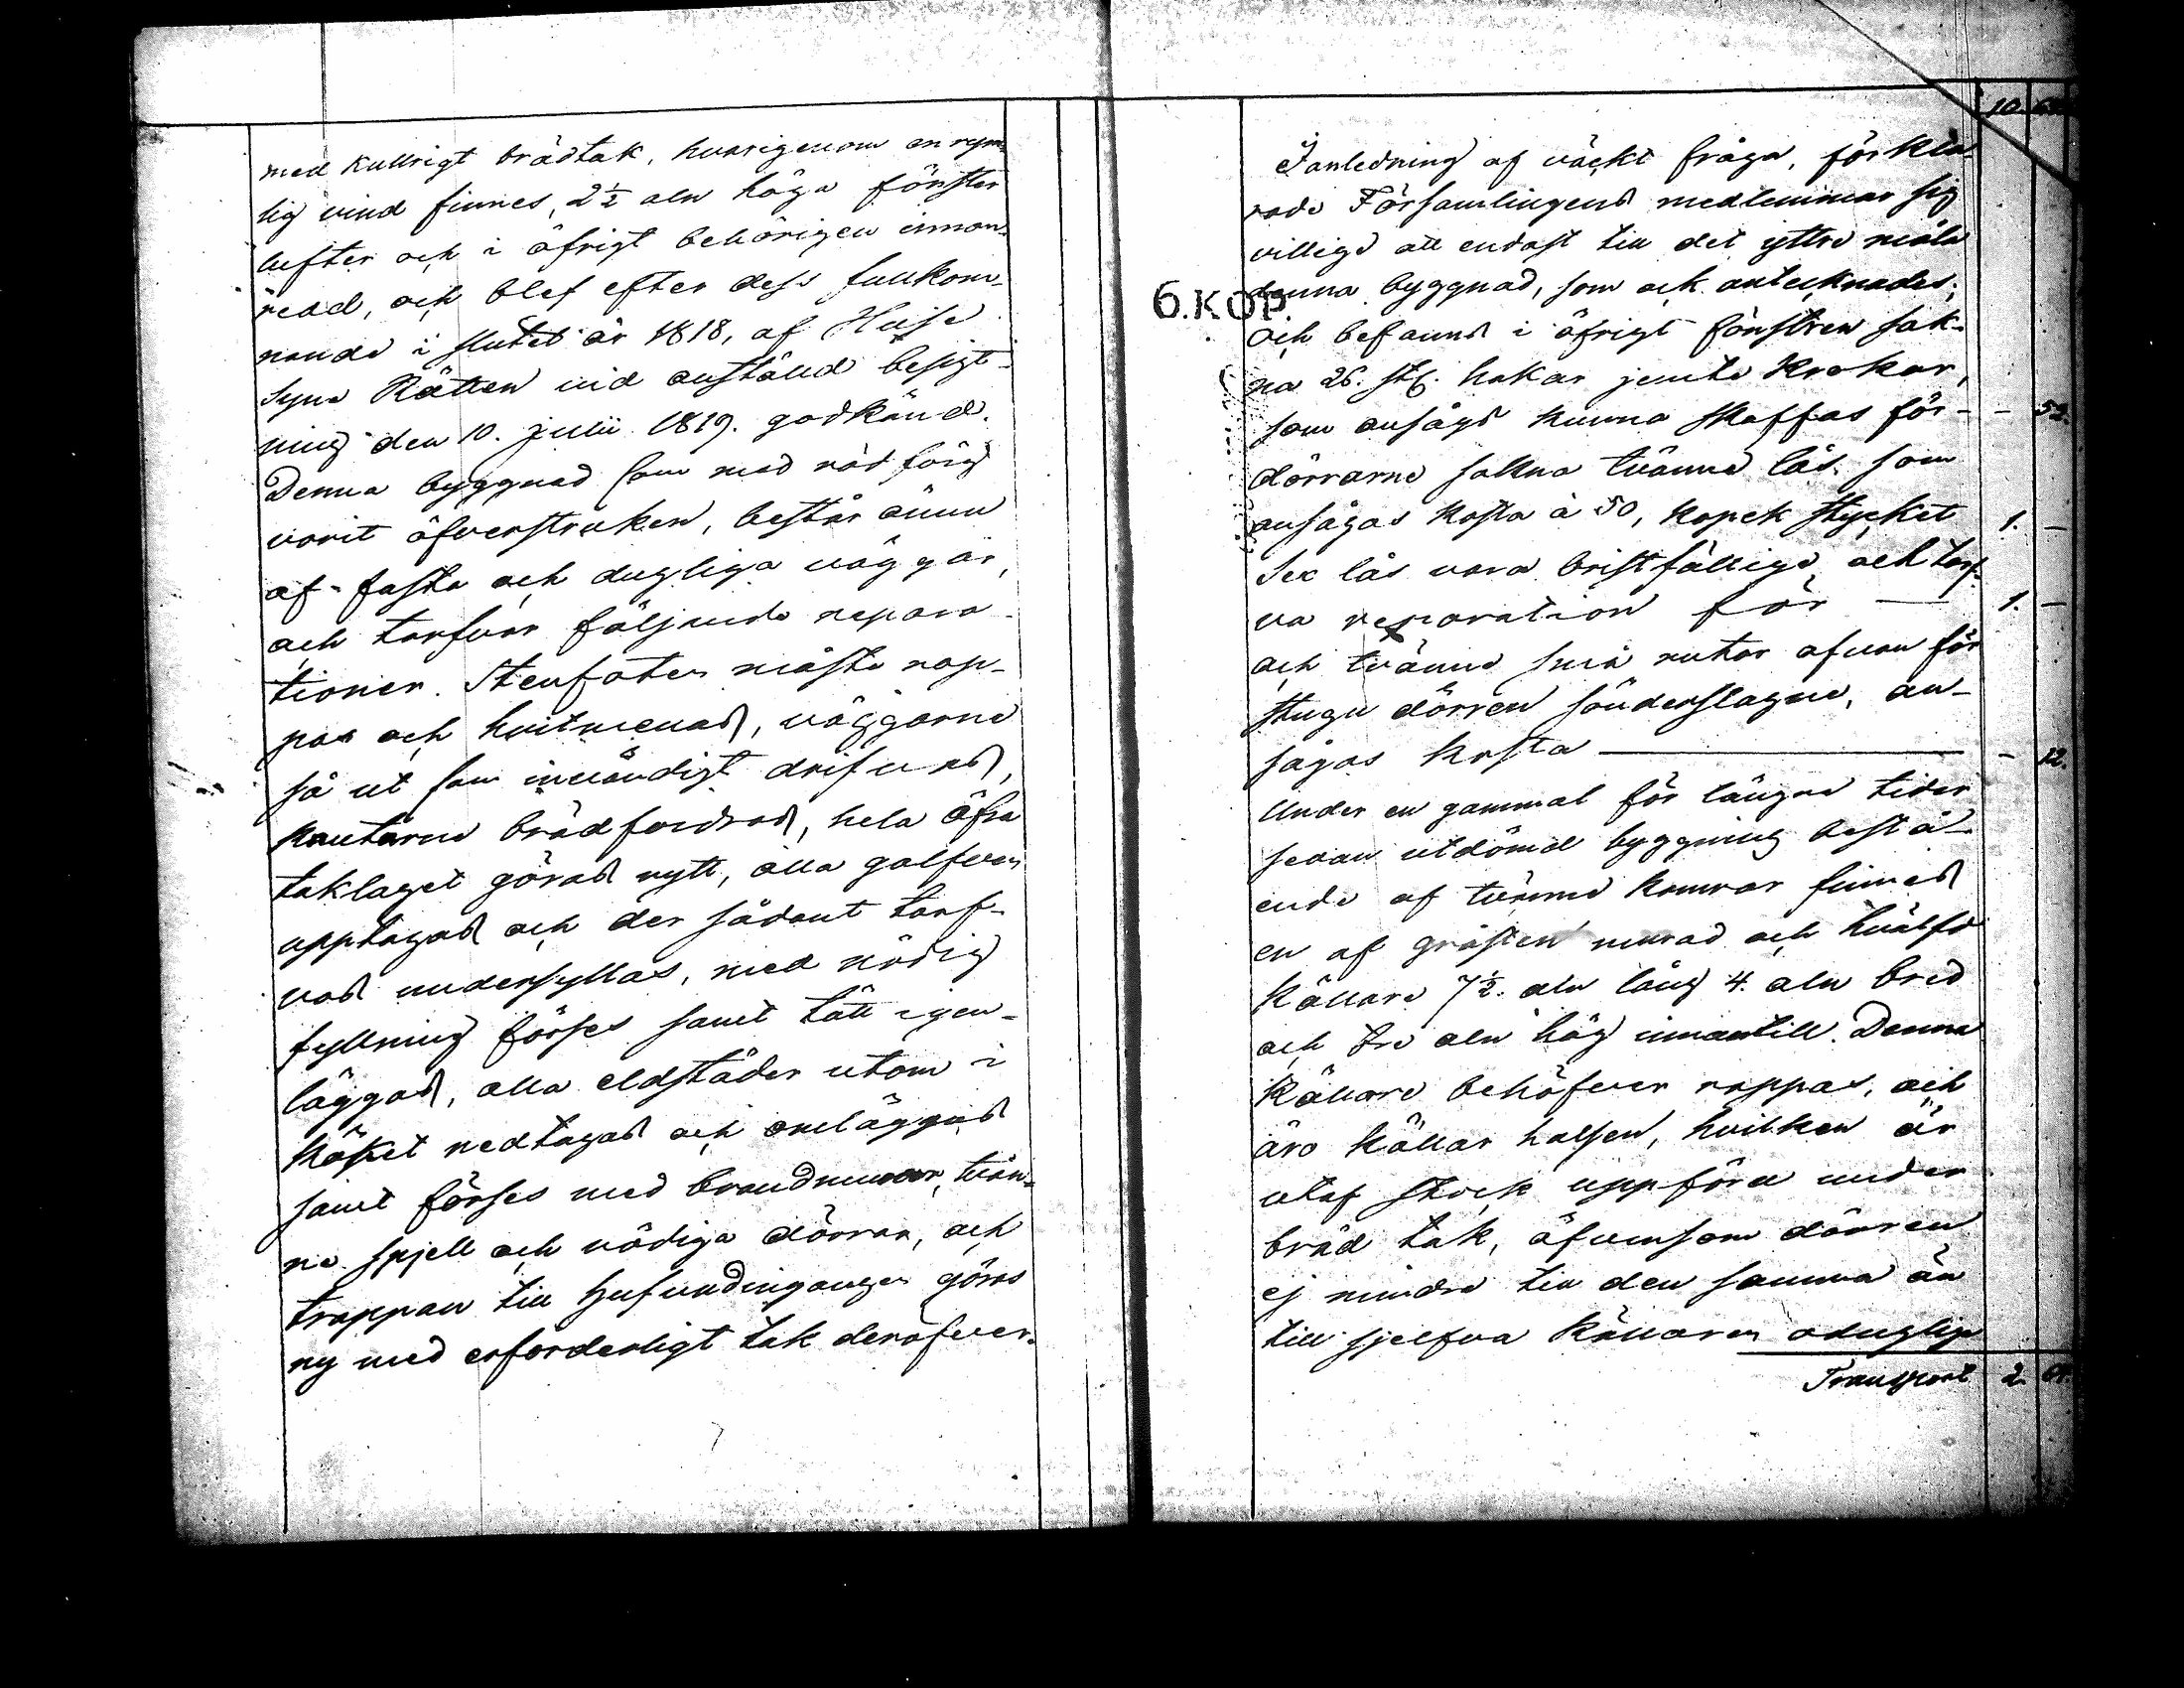 med kullrigt brädtak, hvarigenom en rym-
lig vind finnes, 2½ aln höga fönster
lufter och i öfrigt behörigen innan-
redd, och blef efter dess fullkom-
nande i slutet år 1818, af Huse
syns Rätten vid anstäld besigt-
ning den 10. Julii 1819. godkänd.
Denna byggnad som med röd färg
varit öfverstruken, består ännu
af fasta och dugliga väggar,
och tarfvar följande repara-
tioner. Stenfoten måste rap-
pas och hvitmenas, väggarne
så ut som invändigt drifvas,
knutarne brädfodras, hela öfra
taklaget göras nytt, alla golfven
upptagas och der sådant tarf-
vas undersyllas, med nödig
fyllning förses samt tätt igen-
läggas, alla eldstäder utom i
köket nedtagas och omläggas
samt förses med brandmurar, tvän-
ne spjell och nödiga dörrar, och
trappan till hufvudingången göras
ny med erforderligt tak deröfver.
10. 64
I anledning af väckt fråga, förkla-
rade Församlingens medlemmar sig
villige att endast till det yttre måla
denna byggnad, som ock antecknades;
6.KOP.
och befanns i öfrigt fönstren sak-
na 26. st. hakar jemte krokar,
som ansågs kunna skaffas för - - 52.
dörrarne sakna tvänne lås som
ansågas kosta à 50, kopek stycket 1. -
Sex lås vara bristfällige och tarf-
va reparation för — 1. -
och tvänne små rutor ofvan för
stugu dörren sönderslagne, an-
sågas kosta — - 12.
Under en gammal för längre tider
sedan utdömd byggning bestå-
ende af tvänne kamrar finnes
en af gråsten murad och hvälfd
Källare 7½. aln lång 4. aln bred
och tre aln hög innantill. Denna
Källare behöfver rappas, och
äro källar halsen, hvilken är
utaf stock uppförd under
bräd tak, äfvensom dörren
ej mindre till den samma än
till sjelfva Källaren odugliga
Transport 2. 64.